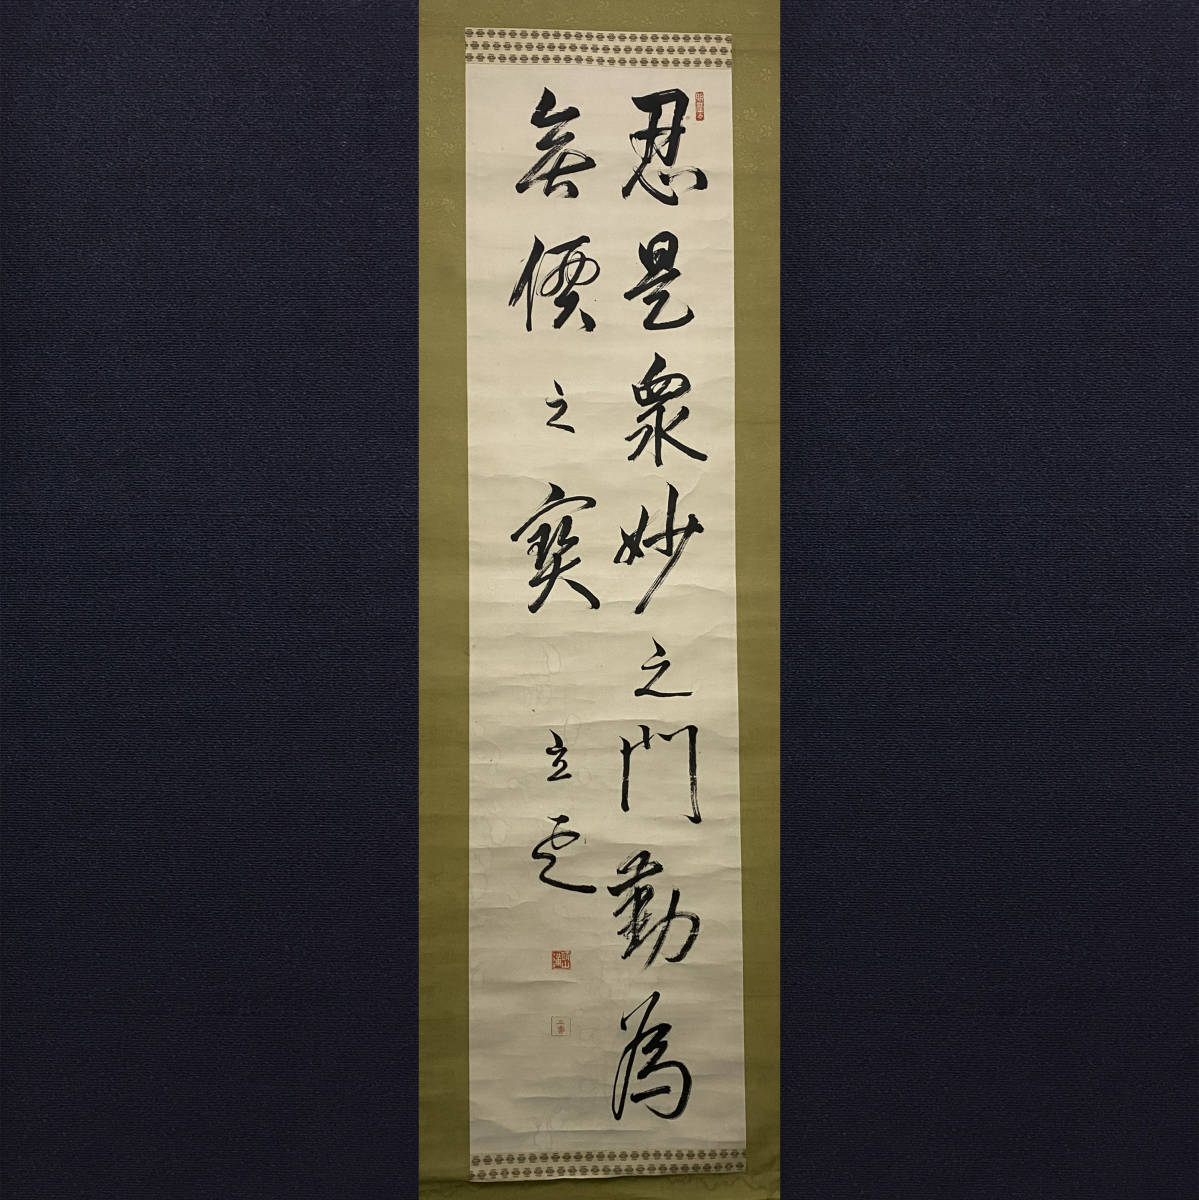 忍是衆妙之門勤為
無價之寶